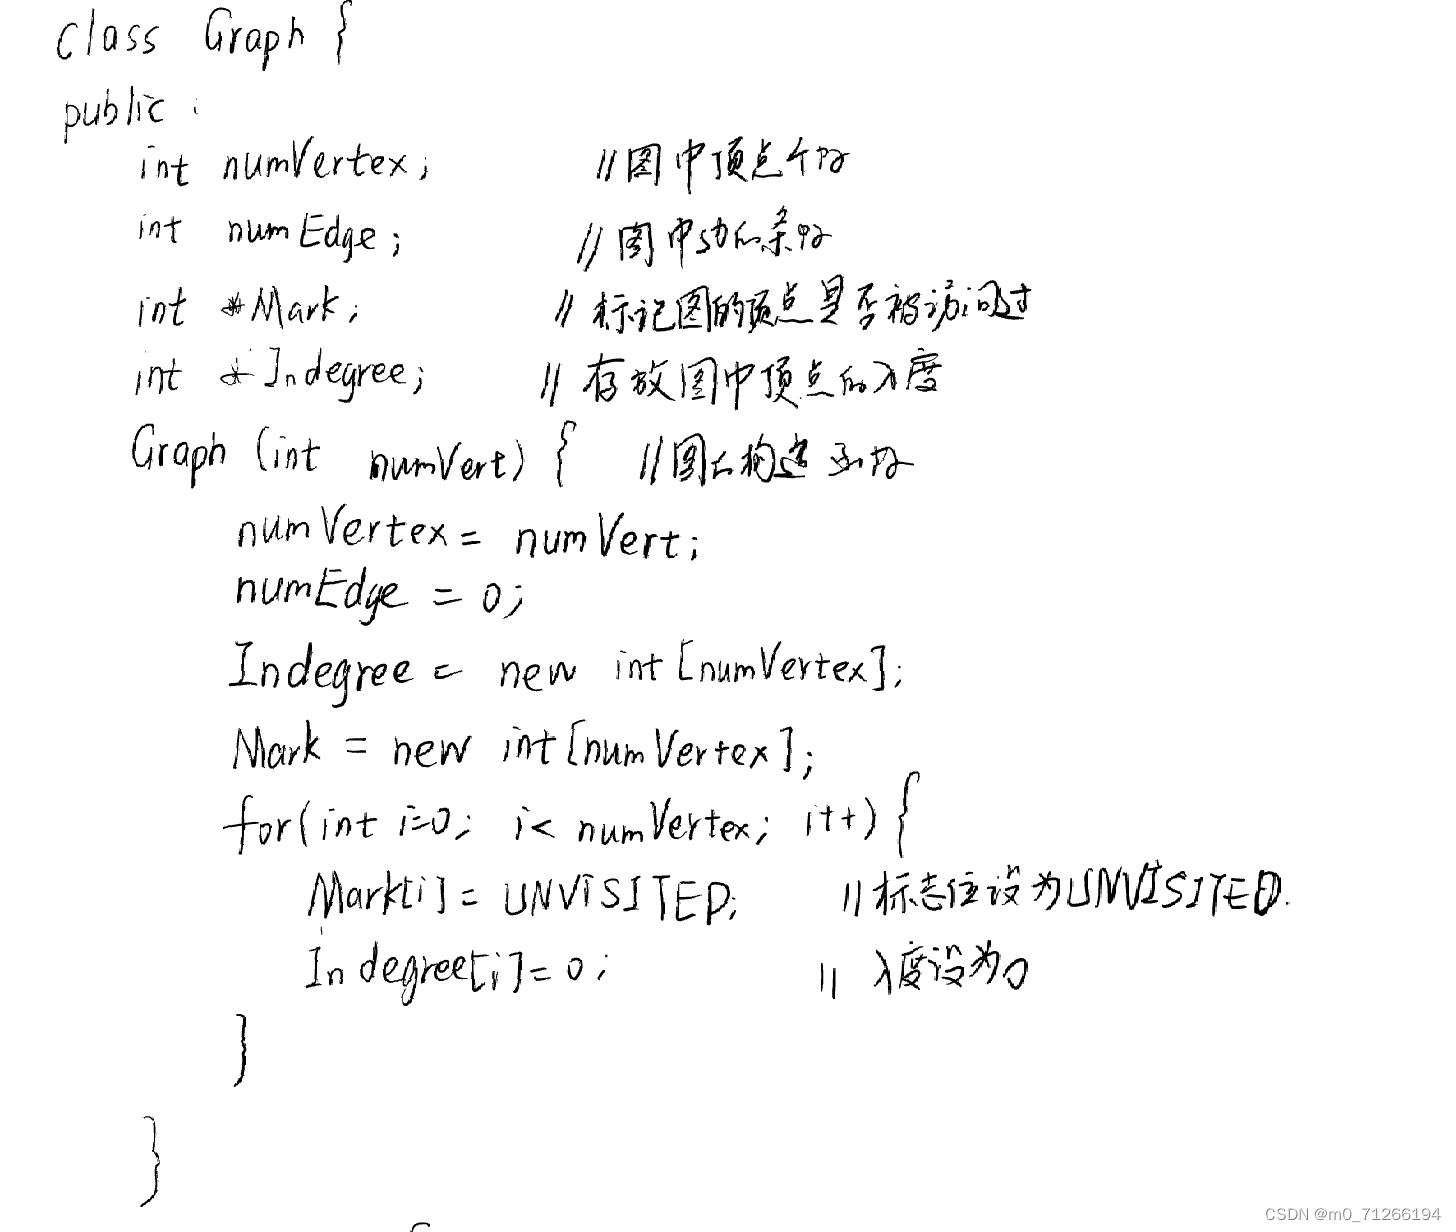 class Graph {
public :
int numVertex; //图中顶点个数
int numEdge; //图中边的条数
int *Mark; //标记图的顶点是否被访问过
int *Indegree; //存放图中顶点的入度
Graph (int numVert) { //图的构造函数
numVertex = numVert;
numEdge = 0;
Indegree = new int[numVertex];
Mark = new int[numVertex];
for(int i=0; i< numVertex; i++) {
Mark[i] = UNVISITED; //标志位设为UNVISITED.
Indegree[i] = 0; // 入度设为0
}
}
CSDN @m0_71266194